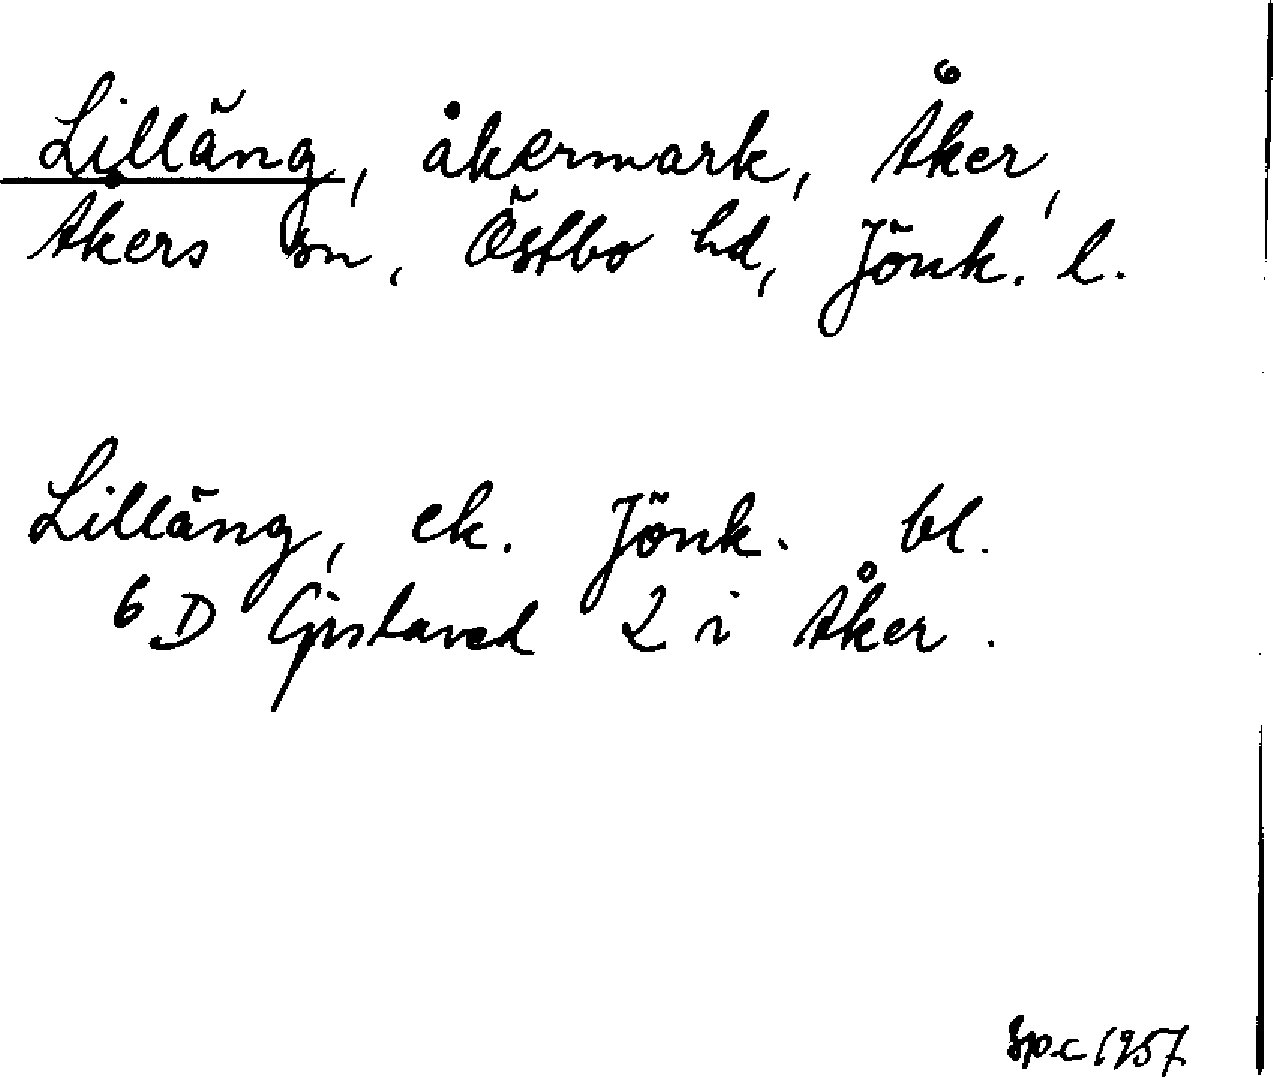 Lilläng, åkermark, Åker,
Åkers sn, Östbo hd, Jönk. l.
Lilläng, ek. Jönk. bl.
6 D Gislaved 2 i Åker.
Spc 1957